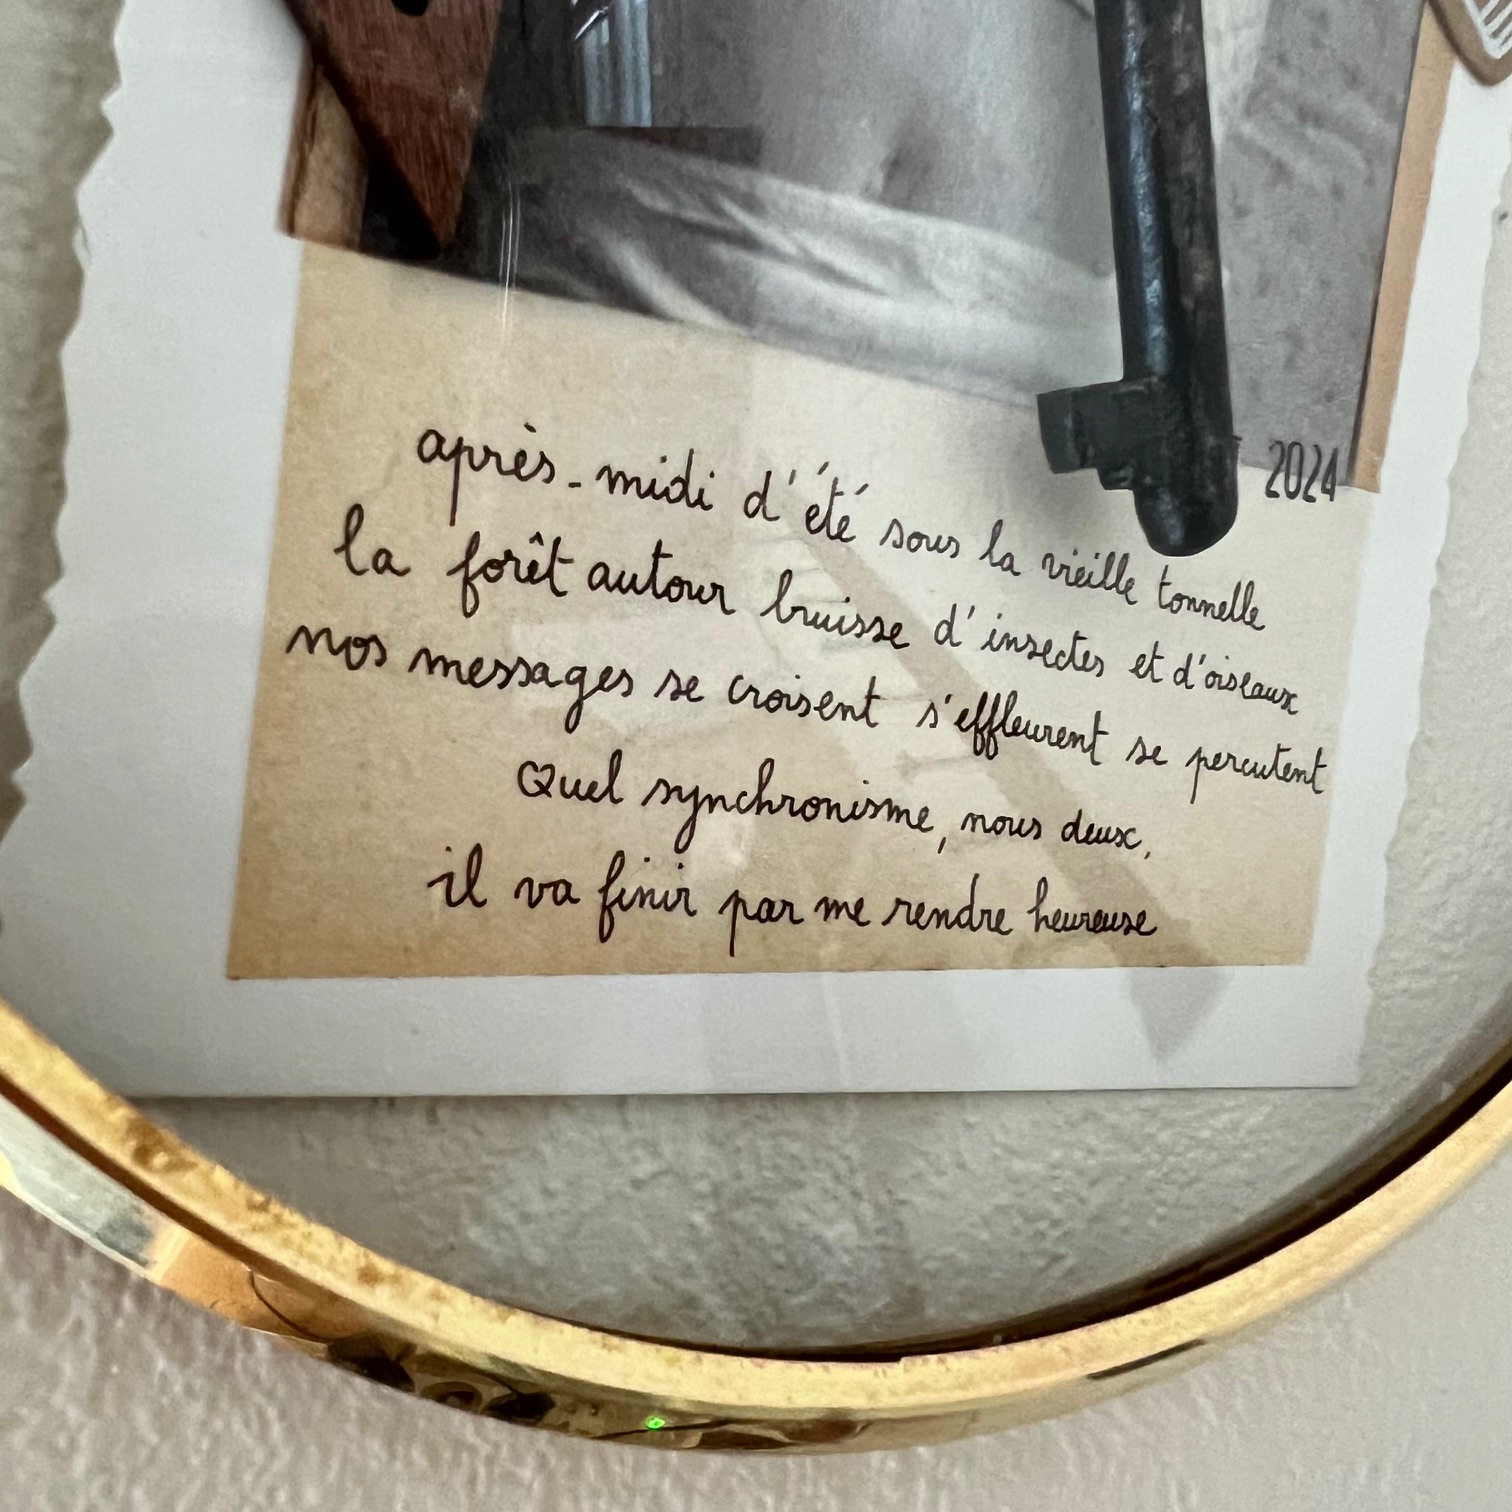 2024
après-midi d'été sous la vieille tonnelle
la forêt autour bruisse d'insectes et d'oiseaux
nos messages se croisent s'effleurent se percutent
Quel synchronisme, nous deux,
il va finir par me rendre heureuse